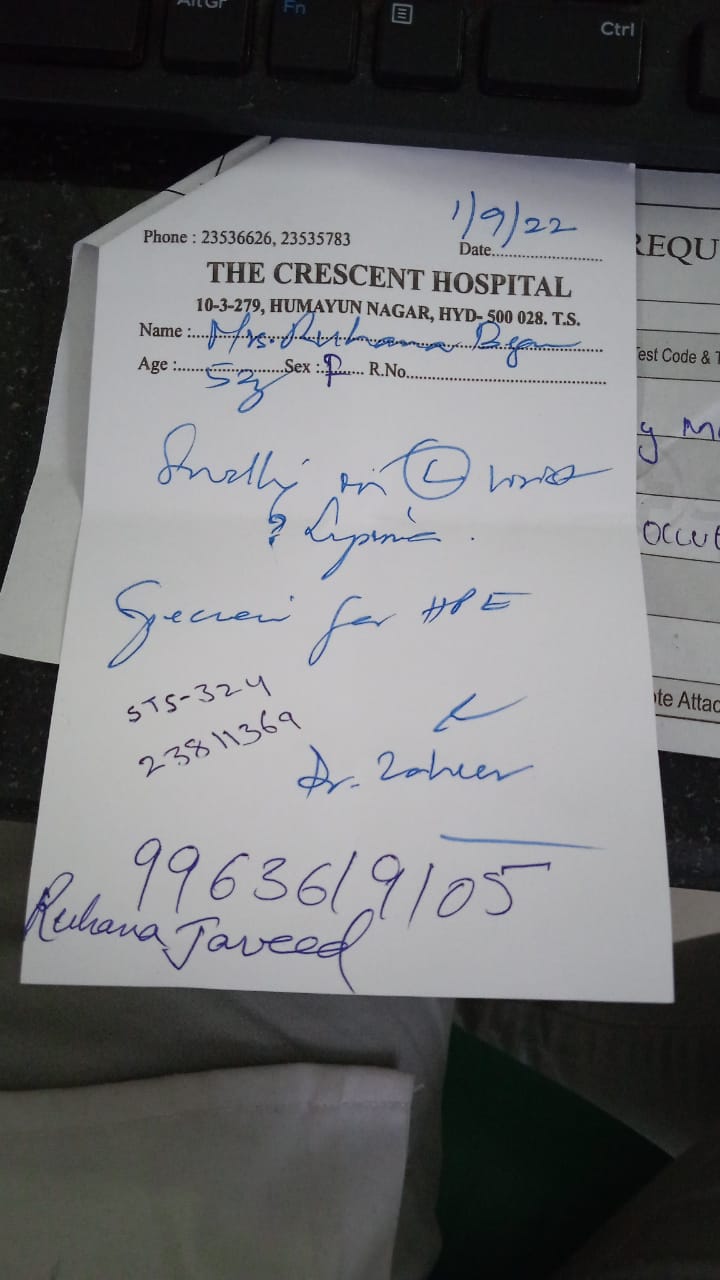 AltGr Fn Ctrl
1/9/22
Phone : 23536626, 23535783
Date
THE CRESCENT HOSPITAL
10-3-279, HUMAYUN NAGAR, HYD- 500 028. T.S.
Name : Mrs. Ruhana Begum
Age : 52 Sex : F R.No.
Swelling on (L) wrist
? Lipoma.
Specimen for HPE
STS-324
23811369
Dr. Zaheer
9963619105
Ruhana Javeed
REQU
est Code & T
y M
OCCU
te Attac